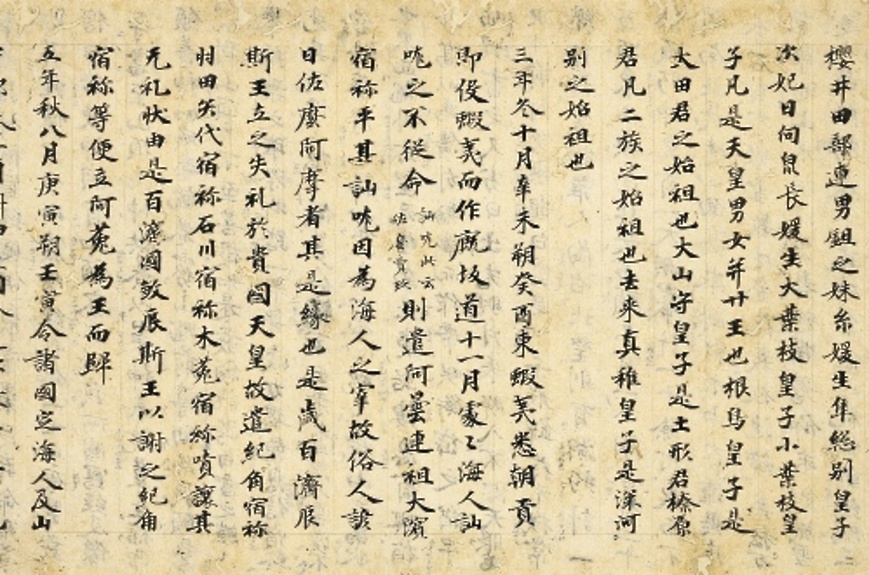 櫻井田部連男鉏之妹糸媛生隼総別皇子
次妃日向泉長媛生大葉枝皇子小葉枝皇
子凡是天皇男女并廿王也根鳥皇子是
太田君之始祖也大山守皇子是土形君榛原
君凡二族之始祖也去来真稚皇子是深河
別之始祖也
三年冬十月辛未朔癸酉東蝦夷悉朝貢
即役蝦夷而作廐坂道十一月處〻海人訕
哤之不従命訕哤此云佐麼賣玖則遣阿曇連祖大濱
宿祢平其訕哤因為海人之宰故俗人諺
曰佐麼阿摩者其是縁也是歳百濟辰
斯王立之失礼於貴國天皇故遣紀角宿祢
羽田矢代宿祢石川宿祢木菟宿祢嘖讓其
无礼状由是百濟國煞辰斯王以謝之紀角
宿祢等便立阿菟為王而歸
五年秋八月庚寅朔壬寅令諸國定海人及山